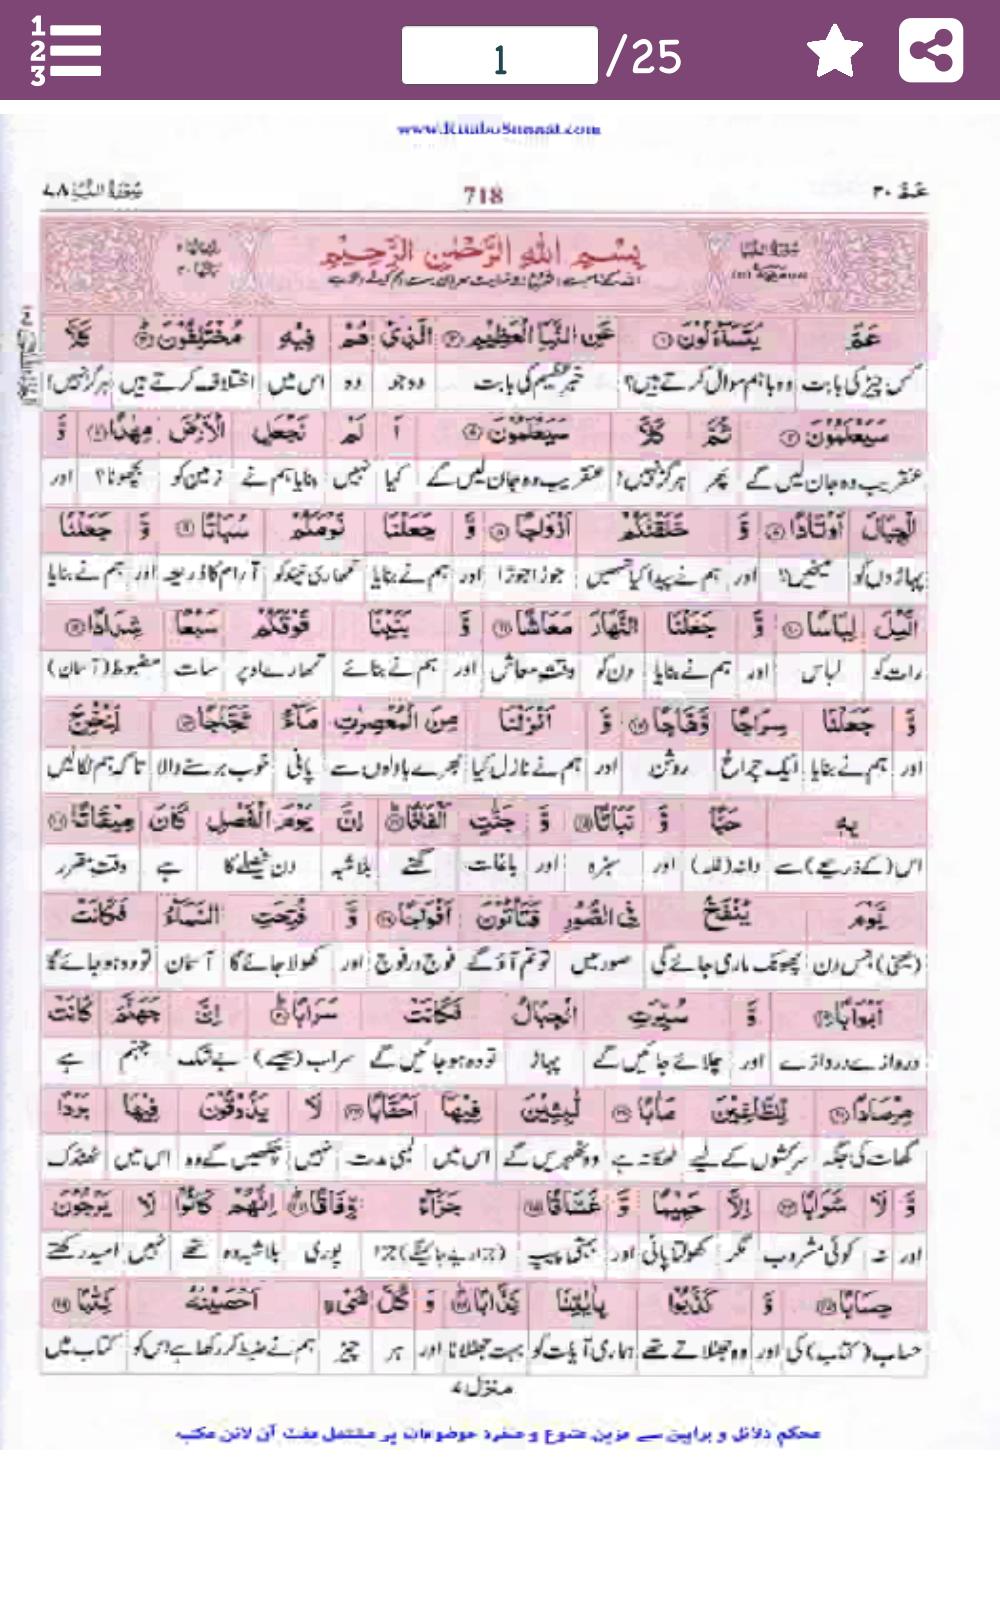 1
2
3
1 /25
www.KitaboSunnat.com
عَمَّ ٣٠ 718 سُوْرَةُ النَّبَا ٧٨
بِسْمِ اللّٰهِ الرَّحْمٰنِ الرَّحِيْمِ
عَمَّ يَتَسَآءَلُوْنَ ۝١ عَنِ النَّبَاِ الْعَظِيْمِ ۝٢ الَّذِيْ هُمْ فِيْهِ مُخْتَلِفُوْنَ ۝٣ كَلَّا
کس چیز کی بابت وہ باہم سوال کرتے ہیں؟ خبر عظیم کی بابت وہ جو وہ اس میں اختلاف کرتے ہیں ہرگز نہیں!
سَيَعْلَمُوْنَ ۝٤ ثُمَّ كَلَّا سَيَعْلَمُوْنَ ۝٥ اَ لَمْ نَجْعَلِ الْاَرْضَ مِهٰدًا ۝٦ وَّ
عنقریب وہ جان لیں گے پھر ہرگز نہیں! عنقریب وہ جان لیں گے کیا نہیں بنایا ہم نے زمین کو بچھونا؟ اور
الْجِبَالَ اَوْتَادًا ۝٧ وَّ خَلَقْنٰكُمْ اَزْوَاجًا ۝٨ وَّ جَعَلْنَا نَوْمَكُمْ سُبَاتًا ۝٩ وَّ جَعَلْنَا
پہاڑوں کو میخیں؟ اور ہم نے پیدا کیا تمہیں جوڑا جوڑا اور ہم نے بنایا تمھاری نیند کو آرام کا ذریعہ اور ہم نے بنایا
الَّيْلَ لِبَاسًا ۝١٠ وَّ جَعَلْنَا النَّهَارَ مَعَاشًا ۝١١ وَّ بَنَيْنَا فَوْقَكُمْ سَبْعًا شِدَادًا ۝١٢
رات کو لباس اور ہم نے بنایا دن کو وقت معاش اور ہم نے بنائے تمھارے اوپر سات مضبوط (آسمان)
وَّ جَعَلْنَا سِرَاجًا وَّهَّاجًا ۝١٣ وَّ اَنْزَلْنَا مِنَ الْمُعْصِرٰتِ مَآءً ثَجَّاجًا ۝١٤ لِّنُخْرِجَ
اور ہم نے بنایا ایک چراغ روشن اور ہم نے نازل کیا بھرے بادلوں سے پانی خوب برسنے والا تاکہ ہم نکالیں
بِهٖ حَبًّا وَّ نَبَاتًا ۝١٥ وَّ جَنّٰتٍ اَلْفَافًا ۝١٦ اِنَّ يَوْمَ الْفَصْلِ كَانَ مِيْقَاتًا ۝١٧
اس (کے ذریعے) سے دانہ (غلہ) اور سبزہ اور باغات گھنے بلاشبہ دن فیصلے کا ہے وقت مقرر
يَّوْمَ يُنْفَخُ فِي الصُّوْرِ فَتَاْتُوْنَ اَفْوَاجًا ۝١٨ وَّ فُتِحَتِ السَّمَآءُ فَكَانَتْ
(یعنی) جس دن پھونک ماری جائے گی صور میں تو تم آؤ گے فوج در فوج اور کھولا جائے گا آسمان تو وہ ہو جائے گا
اَبْوَابًا ۝١٩ وَّ سُيِّرَتِ الْجِبَالُ فَكَانَتْ سَرَابًا ۝٢٠ اِنَّ جَهَنَّمَ كَانَتْ
دروازے دروازے اور چلائے جائیں گے پہاڑ تو وہ ہو جائیں گے سراب (جیسے) بے شک جہنم ہے
مِرْصَادًا ۝٢١ لِّلطَّاغِيْنَ مَاٰبًا ۝٢٢ لّٰبِثِيْنَ فِيْهَآ اَحْقَابًا ۝٢٣ لَا يَذُوْقُوْنَ فِيْهَا بَرْدًا
گھات کی جگہ سرکشوں کے لیے ٹھکانہ ہے وہ ٹھہریں گے اس میں لمبی مدت نہیں چکھیں گے وہ اس میں ٹھنڈک
وَّ لَا شَرَابًا ۝٢٤ اِلَّا حَمِيْمًا وَّ غَسَّاقًا ۝٢٥ جَزَآءً وِّفَاقًا ۝٢٦ اِنَّهُمْ كَانُوْا لَا يَرْجُوْنَ
اور نہ کوئی مشروب مگر کھولتا پانی اور بہتی پیپ پوری بلاشبہ وہ تھے نہیں امید رکھتے
حِسَابًا ۝٢٧ وَّ كَذَّبُوْا بِاٰيٰتِنَا كِذَّابًا ۝٢٨ وَ كُلَّ شَيْءٍ اَحْصَيْنٰهُ كِتٰبًا ۝٢٩
حساب (کتاب) کی اور وہ جھٹلاتے تھے ہماری آیات کو بہت جھٹلانا اور ہر چیز ہم نے ضبط کر رکھا ہے اس کو کتاب میں
منزل ٧
محکم دلائل و براہین سے مزین متنوع و منفرد موضوعات پر مشتمل مفت آن لائن مکتبہ